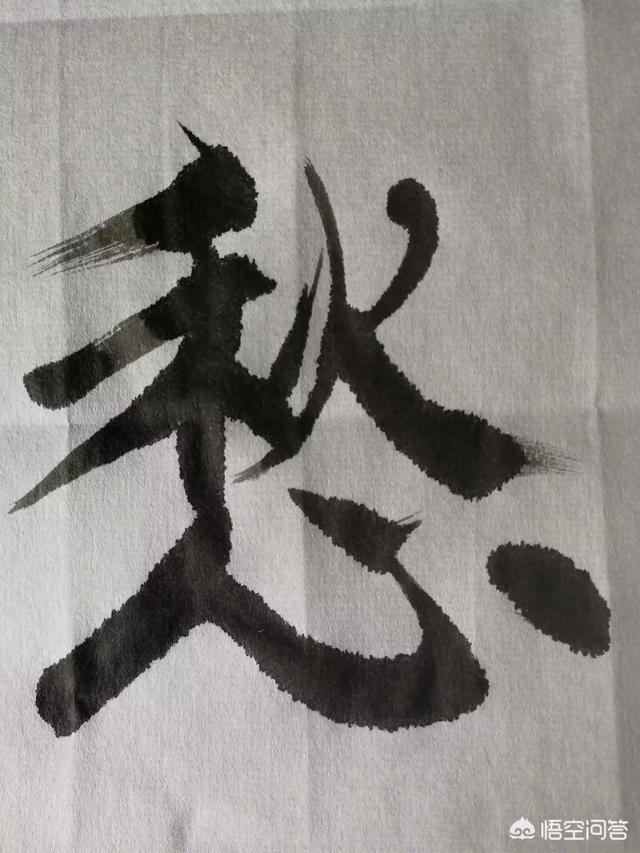 愁
悟空问答